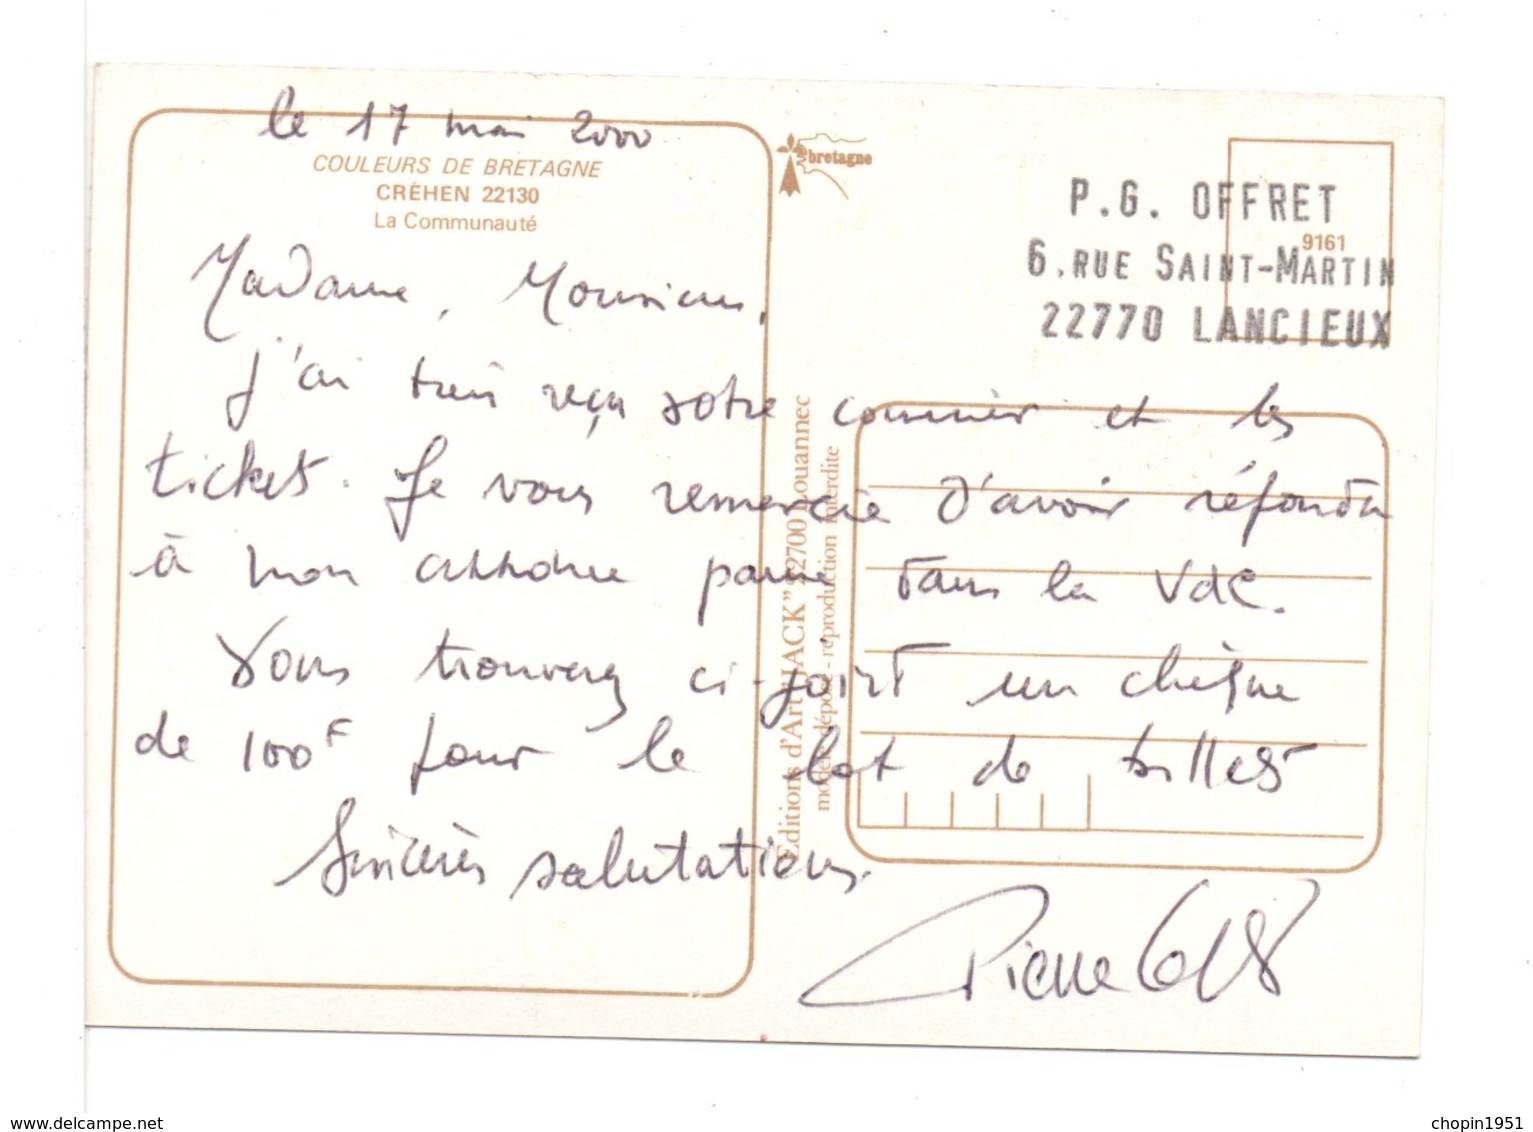 le 17 mai 2000
COULEURS DE BRETAGNE
CRÉHEN 22130
La Communauté
bretagne
P.G. OFFRET
6, RUE SAINT-MARTIN
22770 LANCIEUX
9161
Madame, Monsieur,
j'ai bien reçu votre courrier et les
tickets. Je vous remercie d'avoir répondu
à mon annonce parue dans la VdC.
Vous trouverez ci-joint un chèque
de 100F pour le lot de billets
Sincères salutations.
Pierre
Editions d'Art "JACK" 22700 Louannec
modèle déposé - réproduction interdite
delcampe.net
chopin1951